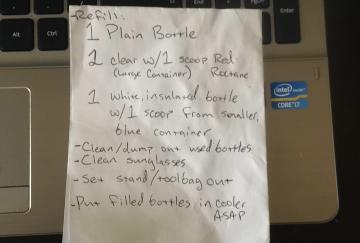 -Refill:
1 Plain Bottle
2 clear w/1 scoop Red
(Large Container) Roctane
1 White, insulated bottle
w/1 scoop from smaller,
blue container
-Clean/dump out used bottles
-Clean sunglasses
-Set stand/toolbag out
-Put filled bottles in cooler
ASAP
Alt
Ctrl
Enter
Ctrl
intel inside
CORE i7